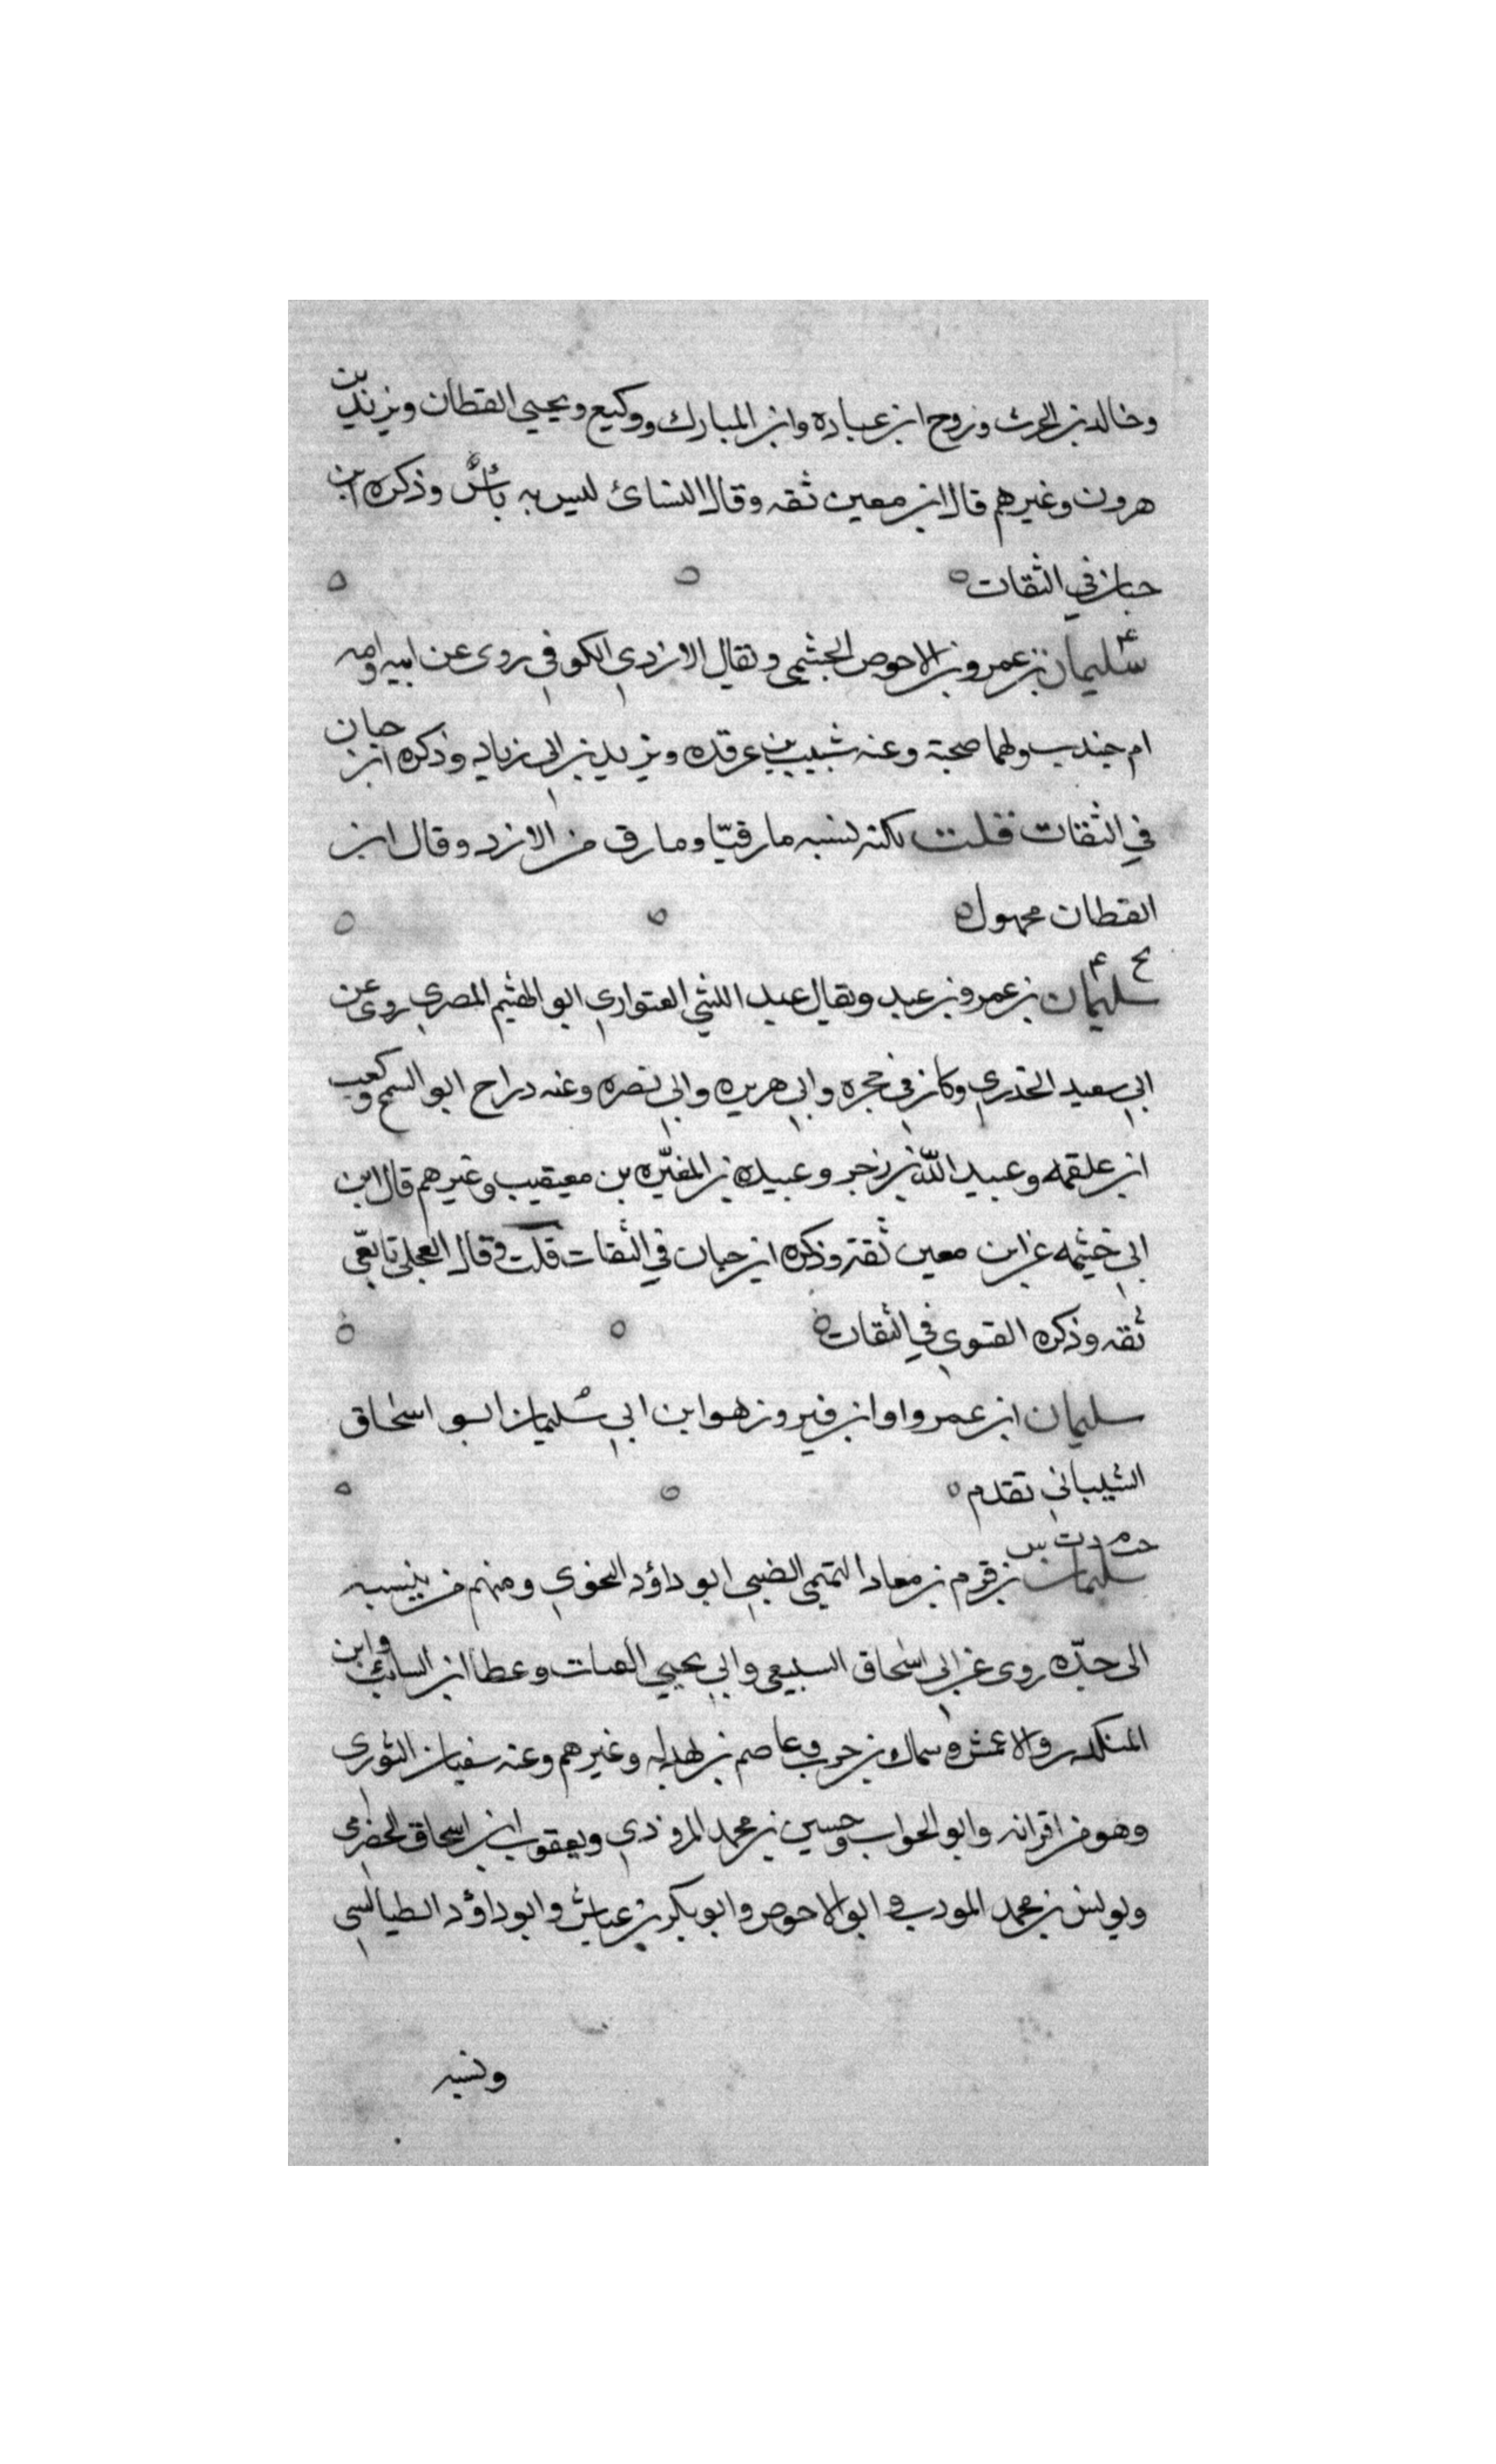 وخالد بن الحرث وروح ابن عباده وابن المبارك ووكيع ويحيى القطان ويزيد بن
هرون وغيرهم قال ابن معين ثقه وقال النسائ ليس به بأسٌ وذكره ابن
حبان في الثقات ه ه ه
ع سليمان بن عمرو بن الاحوص الجشمي ويقال الازدي الكوفي روى عن ابيه وامه
ام جندب ولهما صحبة وعنه شبيب بن عرقده ويزيد بن ابي زياد وذكره ابن حبان
في الثقات قلت لكنه نسبه مارقيّا ومارق من الازد وقال ابن
القطان مجهول ه ه ه
بخ ٤
سليمان بن عمرو بن عبد ويقال عبيد الليثي العتواري ابو الهثيم المصري روى عن
ابي سعيد الخدري وكان في حجره وابي هريره وابي نصره وعنه دراج ابو السمح وكعب
ابن علقمه وعبيد اللّه بن زحر وعبيده بن المغيّره بن معيقيب وغيرهم قال ابن
ابي خيثمه عن ابن معين ثقة وذكره ابن حبان في الثقات قلت وقال العجلي تابعّي
ثقه وذكره الفسوي في الثقات ه ه ه
سليمان ابن عمرو او ابن فيروز هو ابن ابي سليمان ابو اسحاق
الشيباني تقدم ه ه ه
خت م د ت س
سليمان بن قرم بن معاد التميمي الضبي ابو داؤد النحوي ومنهم من ينسبه
الى جدّه روى عن ابي اسحاق السبيعي وابي يحيى القتات وعطا ابن السائب وابن
المنكدر والاعمش وسماك بن حرب وعاصم بن بهدله وغيرهم وعنه سفيان الثوري
وهو من اقرانه وابو الجواب وحسين بن محمد المروذي ويعقوب ابن اسحاق الحضرمي
ويونس بن محمد المودب وابو الاحوص وابو بكر بن عياش وابو داؤد الطيالسي
ونسبه